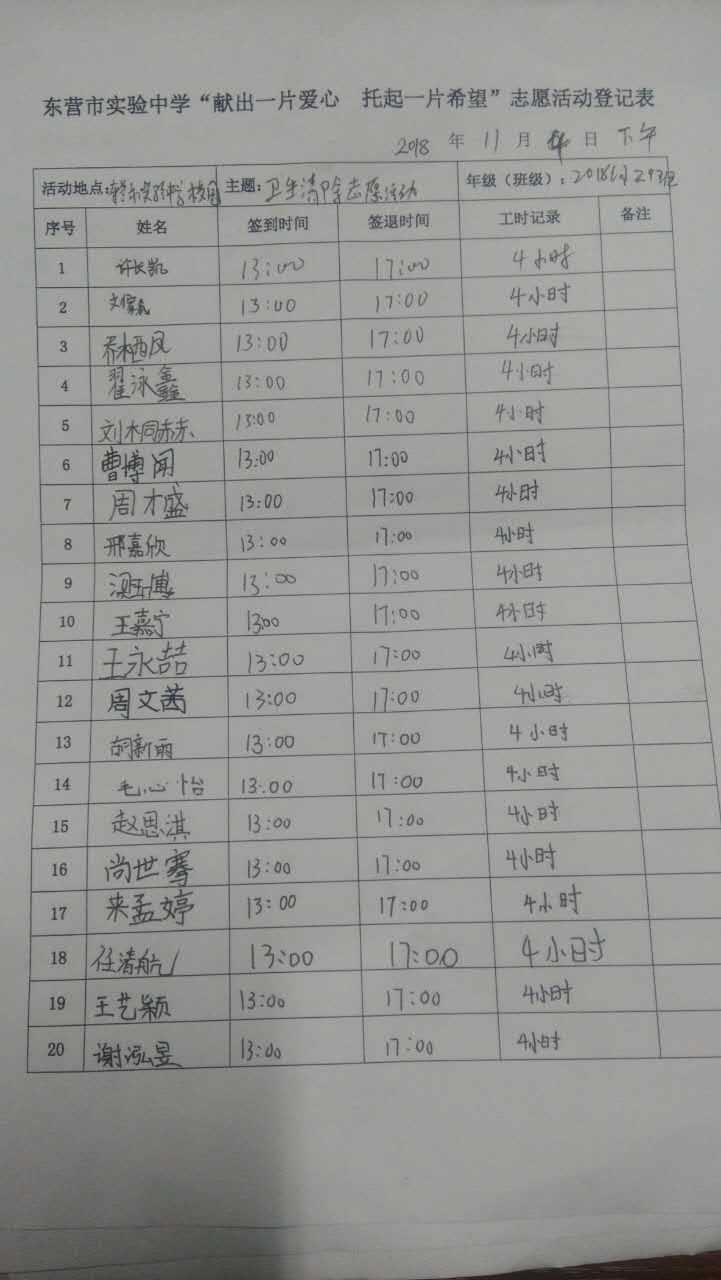 东营市实验中学“献出一片爱心 托起一片希望”志愿活动登记表
2018 年 11 月 日 下午
活动地点: 校园 主题: 卫生清除志愿活动 年级（班级）: 2018级29班
序号 姓名 签到时间 签退时间 工时记录 备注
1 许长凯 13:00 17:00 4小时
2 13:00 17:00 4小时
3 乔栖凤 13:00 17:00 4小时
4 翟泳鑫 13:00 17:00 4小时
5 刘桐赫 13:00 17:00 4小时
6 曹博闻 13:00 17:00 4小时
7 周才盛 13:00 17:00 4小时
8 邢嘉欣 13:00 17:00 4小时
9 13:00 17:00 4小时
10 王嘉宁 13:00 17:00 4小时
11 王永喆 13:00 17:00 4小时
12 周文茜 13:00 17:00 4小时
13 胡新雨 13:00 17:00 4小时
14 毛心怡 13:00 17:00 4小时
15 赵思淇 13:00 17:00 4小时
16 尚世骞 13:00 17:00 4小时
17 来孟婷 13:00 17:00 4小时
18 任清航 13:00 17:00 4小时
19 王艺颖 13:00 17:00 4小时
20 谢泓昱 13:00 17:00 4小时